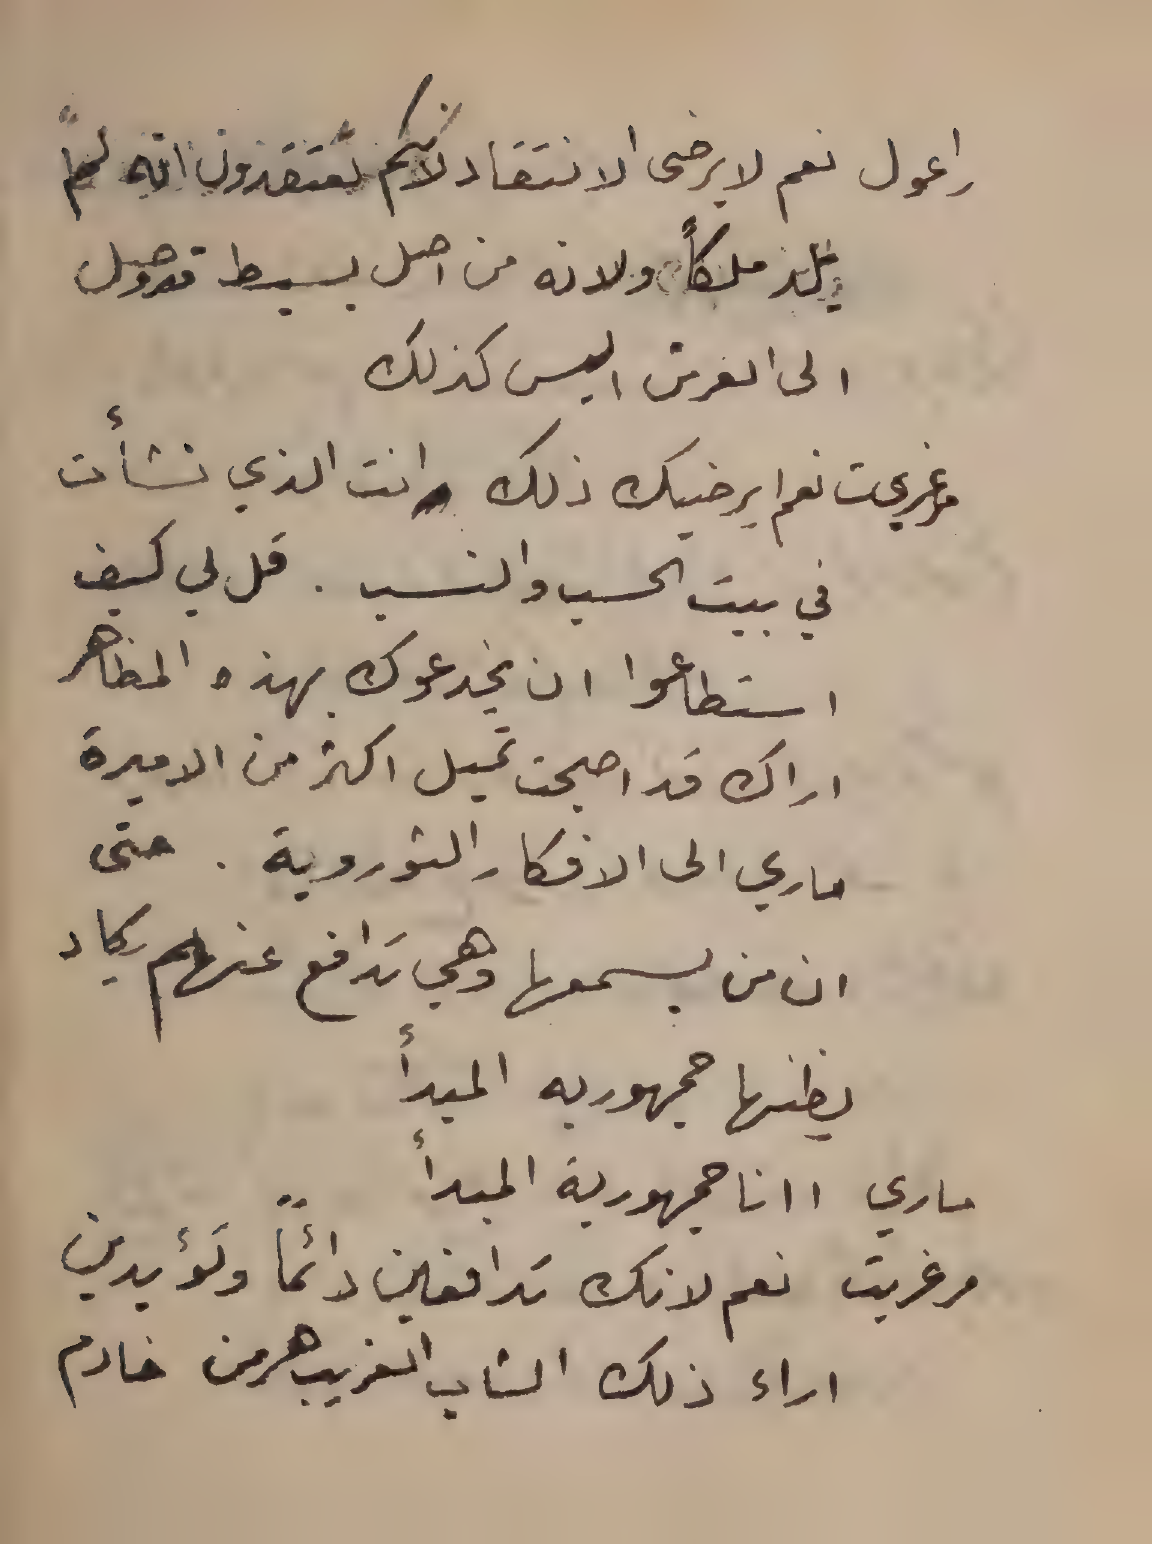 راعول نعم لا يرضى الانتقاد لانكم تعتقدون انه لم
يلد ملكاً ولانه من اصل بسيط قد وصل
الى العرش اليس كذلك
مرغريت نعم ايرضيك ذلك وانت الذي نشأت
في بيت الحسب والنسب . قل لي كيف
استطاعوا ان يخدعوك بهذه المظاهر
اراك قد اصبحت تميل اكثر من الاميرة
ماري الى الافكار الثوروية . حتى
ان من يسمعها وهي تدافع عنهم يكاد
يظنها جمهوريه المبدأ
ماري اانا جمهورية المبدأ
مرغريت نعم لانك تدافعين دائماً وتؤيدين
اراء ذلك الشاب الغريب هرمن خادم